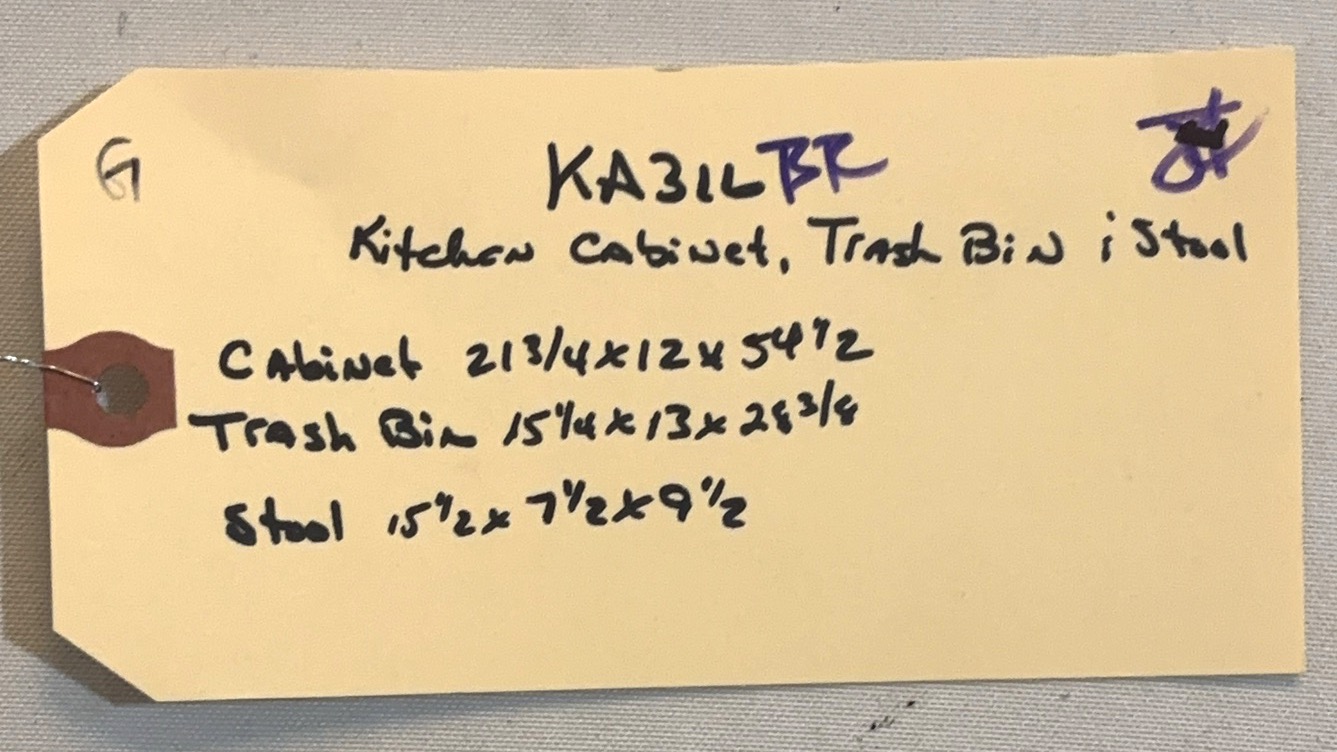 G
KA31LBR
Kitchen Cabinet, Trash Bin ; Stool
Cabinet 21 3/4 x 12 x 54 1/2
Trash Bin 15 1/4 x 13 x 28 3/8
Stool 15 1/2 x 7 1/2 x 9 1/2